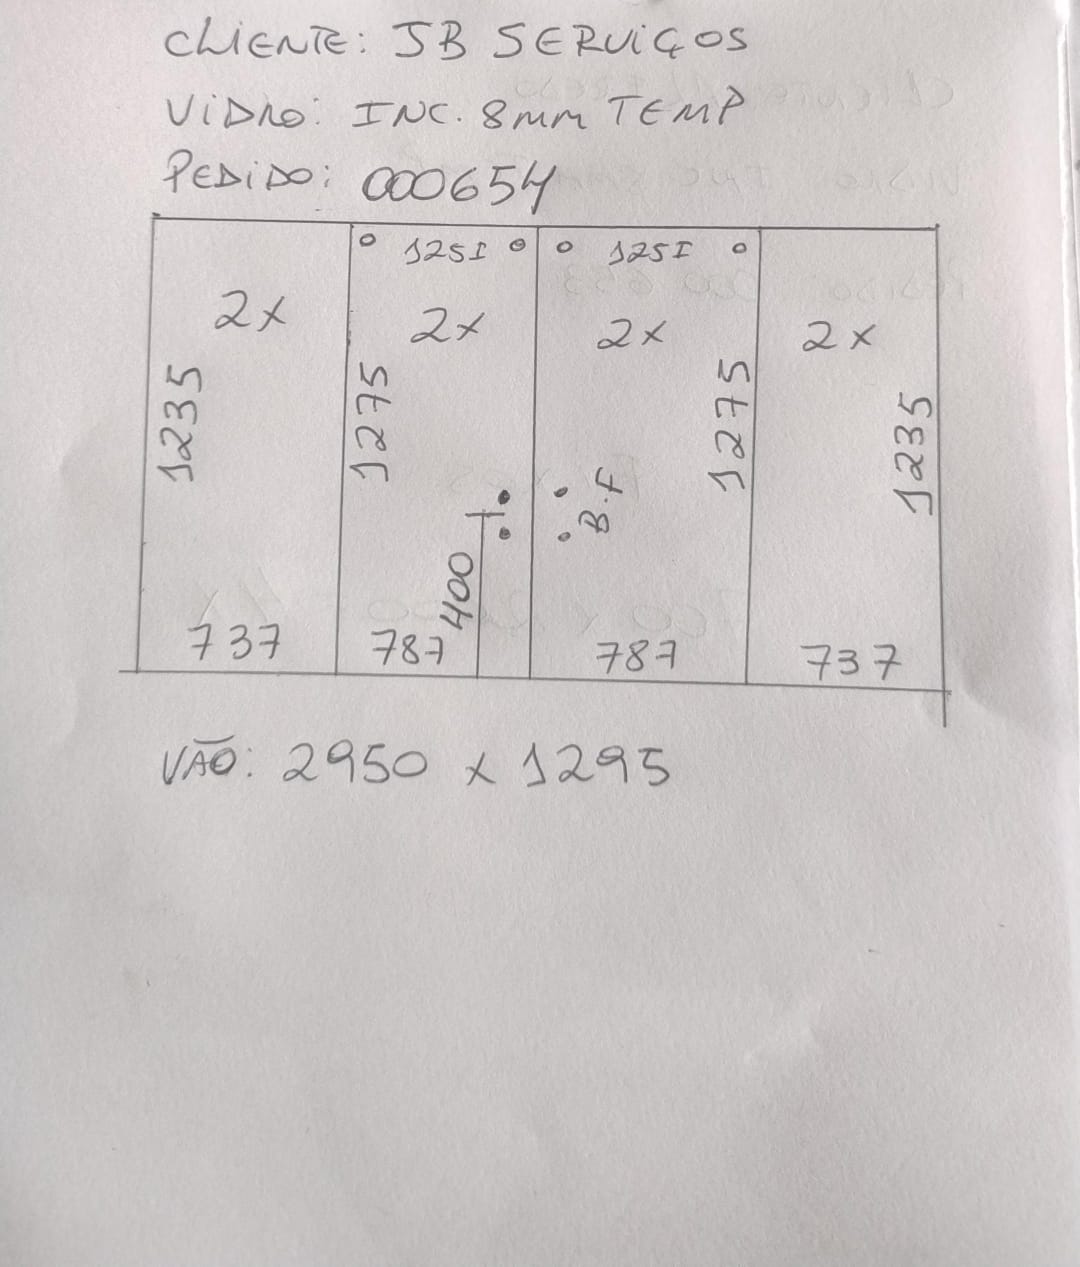 CLIENTE: JB SERVIÇOS
VIDRO: INC. 8mm TEMP
PEDIDO: 000654
125I 125I
2x 2x 2x 2x
1235 1275 1275 1235
400 B.F
737 787 787 737
VÃO: 2950 x 1295